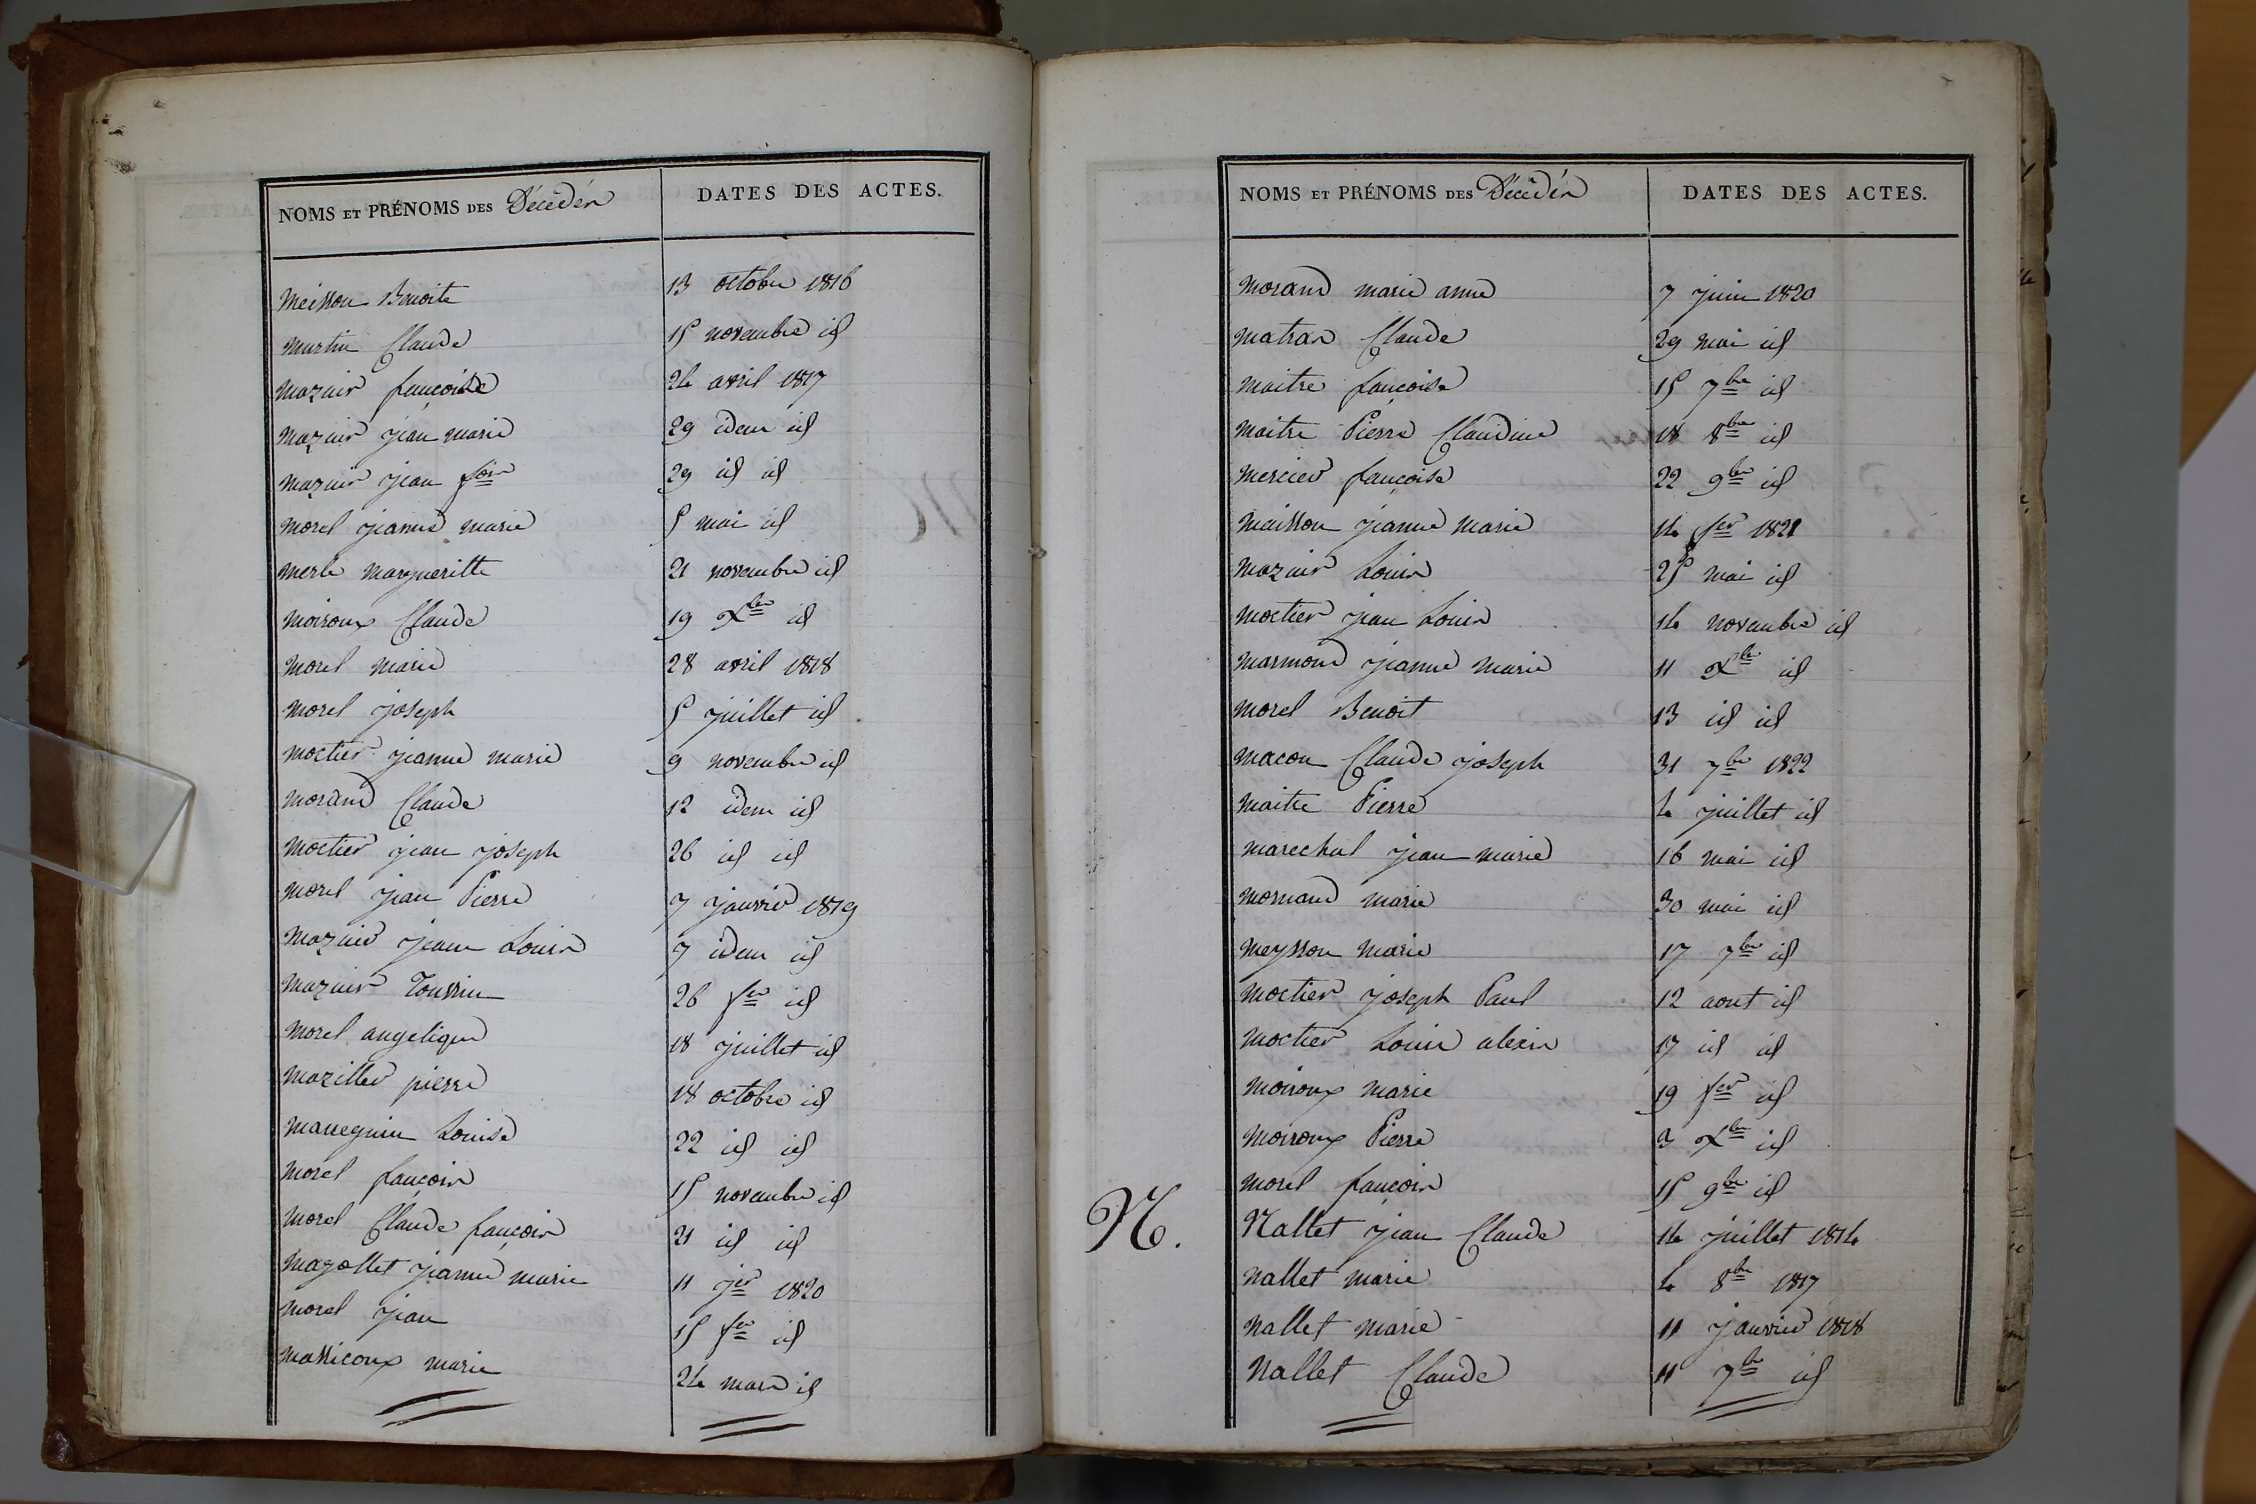 NOMS ET PRÉNOMS DES Décédés
DATES DES ACTES.
Meisson Benoite 13 octobre 1816
Martin Claude 15 novembre id
Mazuir françoise 24 avril 1817
Mazuir jean marie 29 idem id
Mazuir jean fois 29 id id
Morel jeanne marie 5 mai id
Merle margueritte 21 novembre id
Moiroux Claude 19 Xbre id
Morel marie 28 avril 1818
Morel joseph 5 juillet id
Moctier jeanne marie 9 novembre id
Morand Claude 12 idem id
Moctier jean joseph 26 id id
Morel jean Pierre 7 janvier 1819
Mazuir jean Louis 7 idem id
Mazuir Toussin 26 fer id
Morel angelique 18 juillet id
Maziller pierre 18 octobre id
Mannequin Louise 22 id id
Morel françois 15 novembre id
Morel Claude françois 21 id id
Magollet jeanne marie 11 jer 1820
Morel jean 15 fer id
Massicoux marie 24 mars id
NOMS ET PRÉNOMS DES Décédés
DATES DES ACTES.
Morand marie anne 7 juin 1820
Matras Claude 29 mai id
Maitre françoise 15 7bre id
Maitre Pierre Claudine 18 8bre id
Mercier françoise 22 9bre id
Maisson jeanne marie 14 fer 1821
Mazuir Louis 25 mai id
Moctier jean Louis 14 novembre id
Marmond jeanne marie 11 Xbre id
Morel Benoit 13 id id
Macon Claude joseph 31 7bre 1822
Maitre Pierre 4 juillet id
Marechal jean marie 16 mai id
Mornand marie 30 mai id
Meysson marie 17 7bre id
Moctier joseph Paul 12 aout id
Moctier Louis alexis 17 id id
Moiroux marie 19 fer id
Moiroux Pierre 3 Xbre id
Morel françois 15 9bre id
N. Nallet jean Claude 14 juillet 1814
Nallet marie 4 8bre 1817
Nallet marie 11 janvier 1818
Nallet Claude 11 7bre id